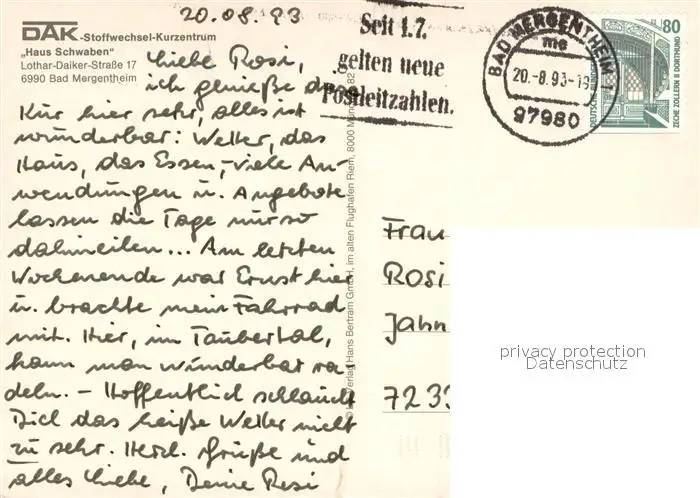 20.08.93
DAK-Stoffwechsel-Kurzentrum
„Haus Schwaben"
Lothar-Daiker-Straße 17
6990 Bad Mergentheim
Liebe Rosi,
ich genieße die
Kur hier sehr, alles ist
wunderbar: Wetter, das
Haus, das Essen, – viele An-
wendungen u. Angebote
lassen die Tage nur so
dahineilen... Am letzten
Wochenende war Ernst hier
u. brachte mein Fahrrad
mit. Hier, im Taubertal,
kann man wunderbar ra-
deln. – Hoffentlich schlaucht
Dich das heiße Wetter nicht
zu sehr. Herzl. Grüße und
alles Liebe, Deine Resi
Seit 1.7.
gelten neue
Postleitzahlen.
BAD MERGENTHEIM 1
me
20.-8.93-19
97980
80
DEUTSCHE
ZECHE ZOLLERN II DORTMUND
Verlag Hans Bertram GmbH, im alten Flughafen Riem, 8000 München 82
Frau
Rosi
Jahn
7233
privacy protection
Datenschutz